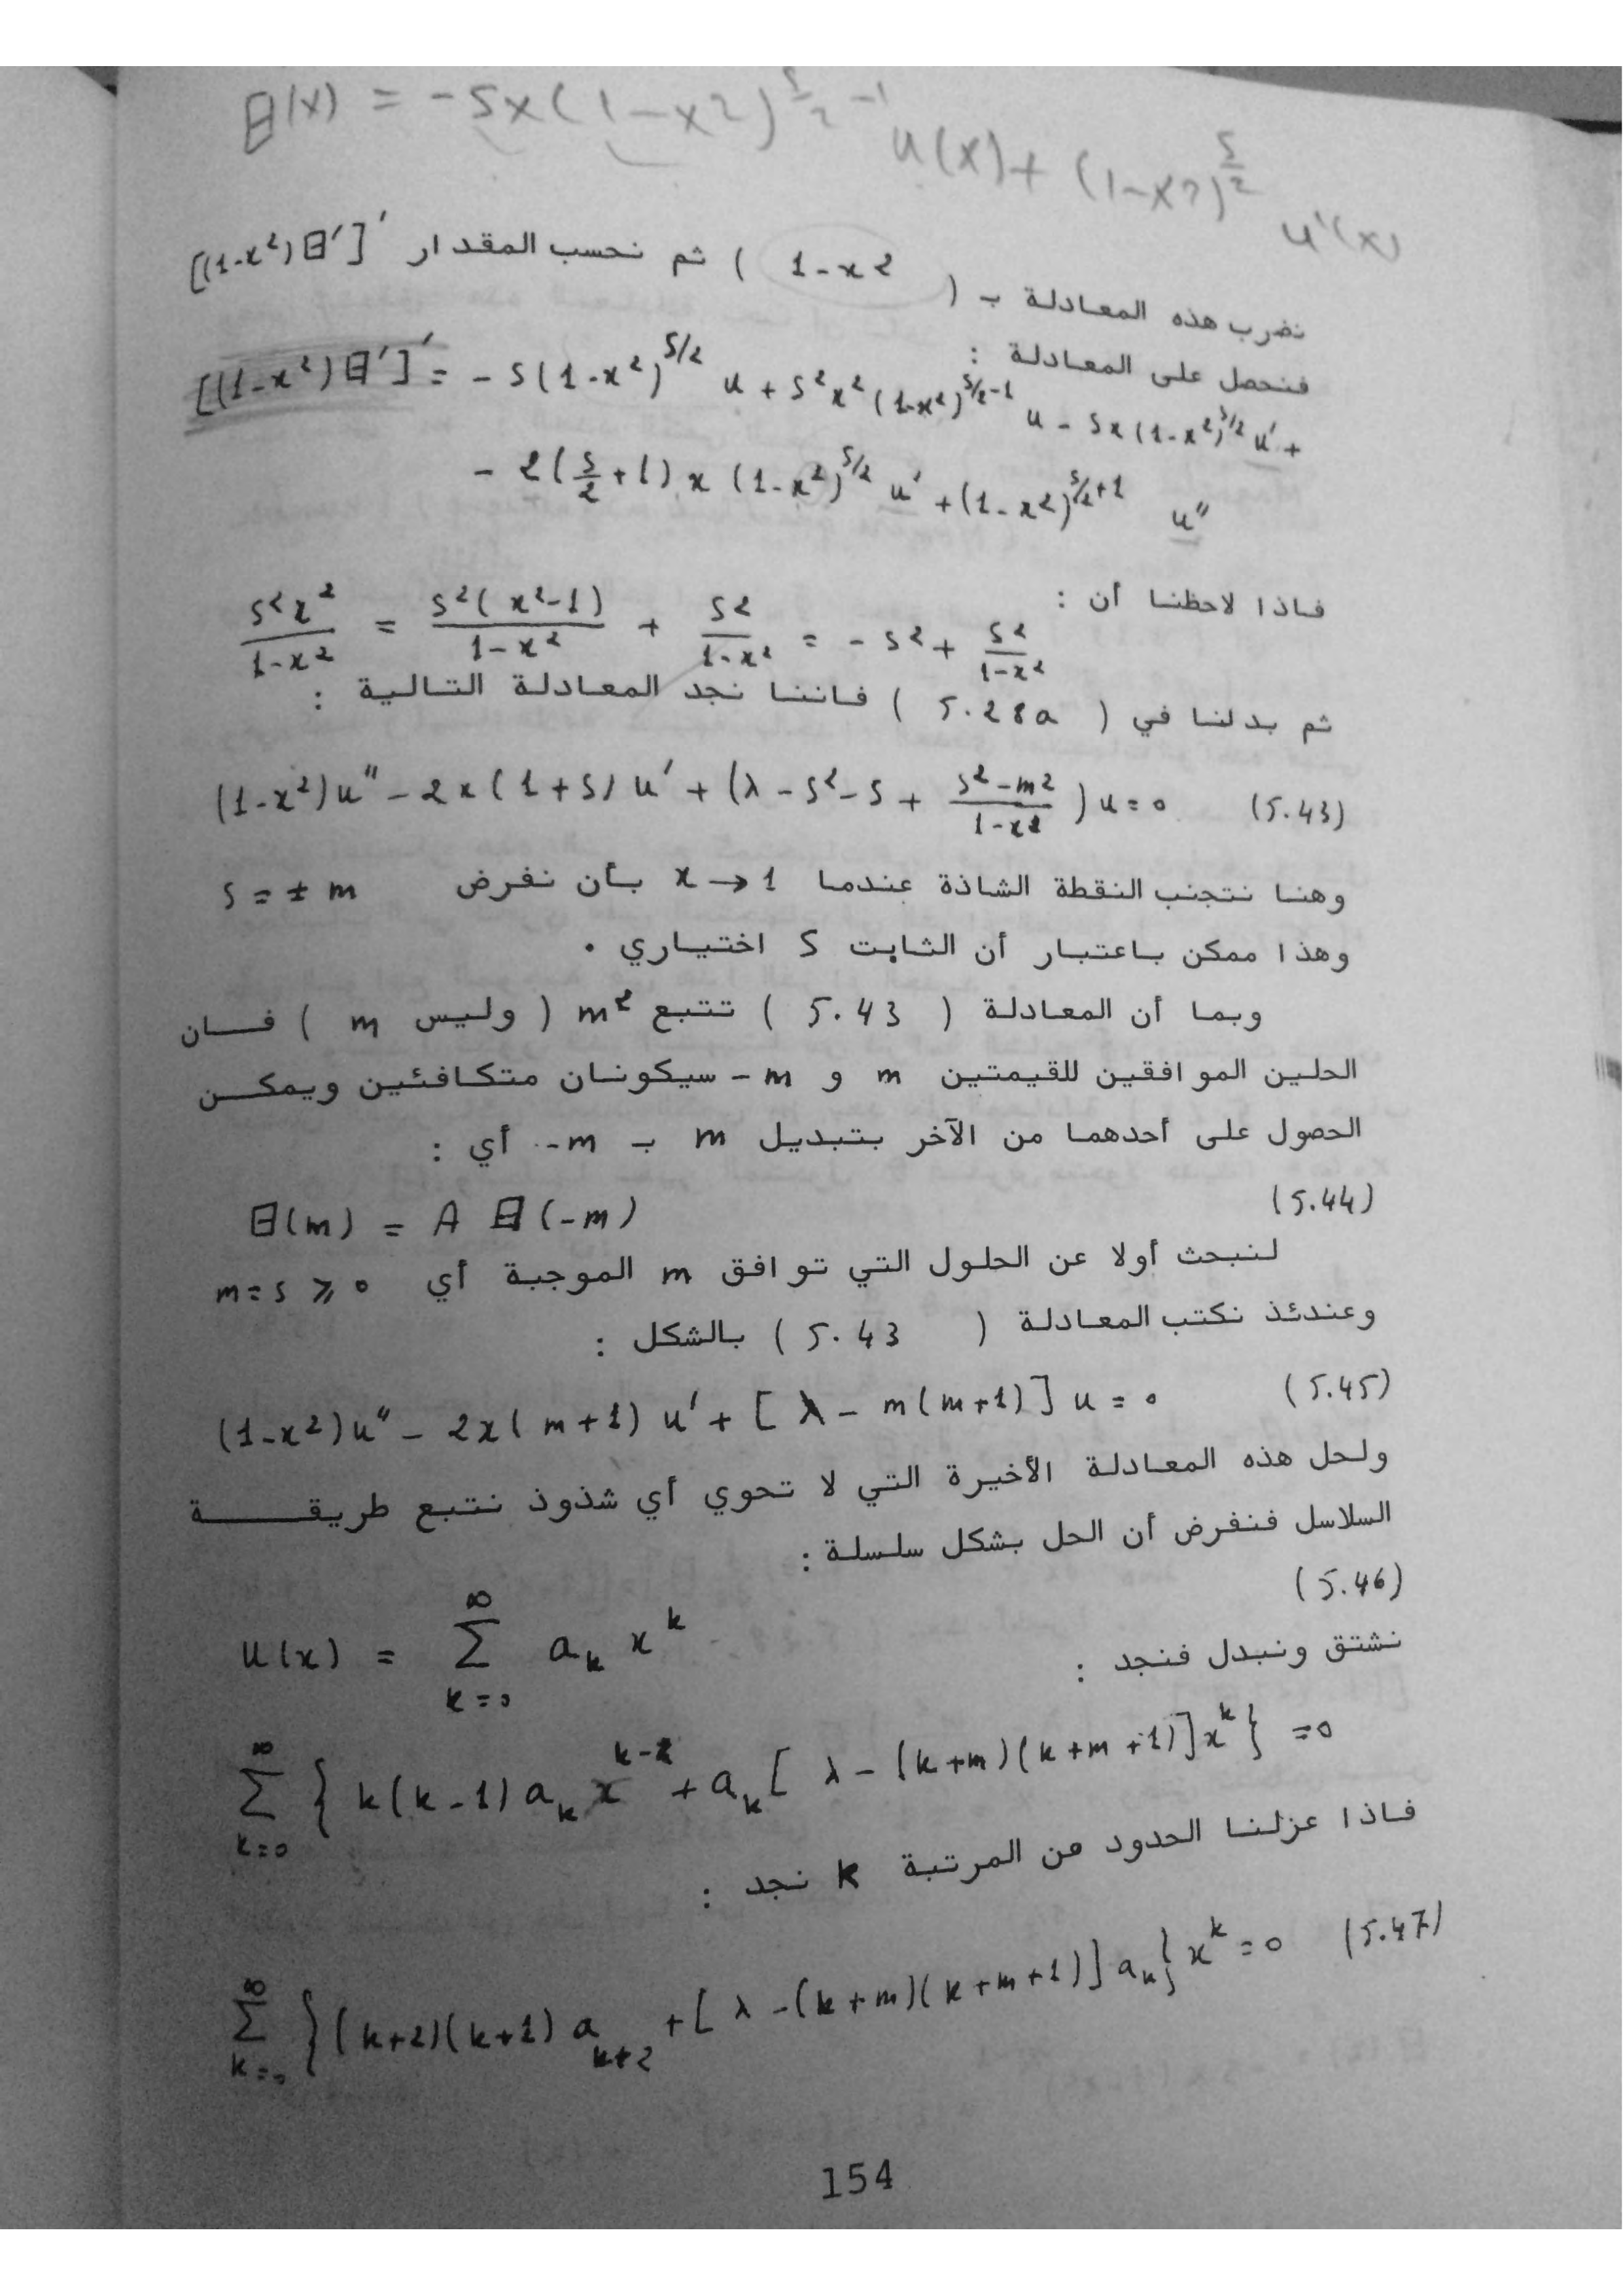 Θ'(x) = -Sx(1-x2)^{S/2 -1} u(x) + (1-x2)^{S/2} u'(x)
نضرب هذه المعادلة بـ ( 1-x2 ) ثم نحسب المقدار [(1-x²)Θ']'
فنحصل على المعادلة :
[(1-x²)Θ']' = - S(1-x²)^{S/2} u + S²x²(1-x²)^{S/2-1} u - Sx(1-x²)^{S/2} u' +
- 2(S/2 + 1) x (1-x²)^{S/2} u' + (1-x²)^{S/2+1} u''
فاذا لاحظنا أن :
S²x²/(1-x²) = S²(x²-1)/(1-x²) + S²/(1-x²) = - S² + S²/(1-x²)
ثم بدلنا في ( 5.28a ) فاننا نجد المعادلة التالية :
(1-x²)u'' - 2x(1+S)u' + (λ - S² - S + (S²-m²)/(1-x²))u = 0 (5.43)
وهنا نتجنب النقطة الشاذة عندما x → 1 بأن نفرض S = ± m
وهذا ممكن باعتبار أن الثابت S اختياري .
وبما أن المعادلة ( 5.43 ) تتبع m² ( وليس m ) فان
الحلين الموافقين للقيمتين m و -m سيكونان متكافئين ويمكن
الحصول على أحدهما من الآخر بتبديل m بـ -m أي :
Θ(m) = A Θ(-m) (5.44)
لنبحث أولا عن الحلول التي توافق m الموجبة أي m = S ⩾ 0
وعندئذ نكتب المعادلة ( 5.43 ) بالشكل :
(1-x²)u'' - 2x(m+1)u' + [λ - m(m+1)]u = 0 (5.45)
ولحل هذه المعادلة الأخيرة التي لا تحوي أي شذوذ نتبع طريقة
السلاسل فنفرض أن الحل بشكل سلسلة :
u(x) = ∑_{k=0}^{∞} a_k x^k (5.46)
نشتق ونبدل فنجد :
∑_{k=0}^{∞} { k(k-1) a_k x^{k-2} + a_k [ λ - (k+m)(k+m+1)] x^k } = 0
فاذا عزلنا الحدود من المرتبة k نجد :
∑_{k=0}^{∞} {(k+2)(k+1) a_{k+2} + [ λ - (k+m)(k+m+1)] a_k} x^k = 0 (5.47)
154